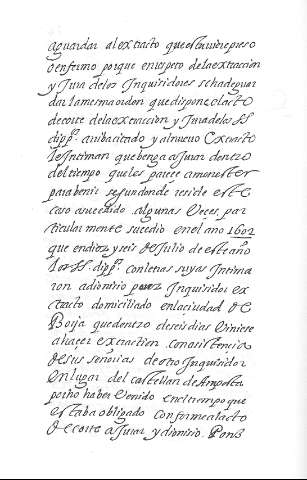 aguardar al extracto que estuuiere preso
o enfermo porque en respeto de la extraccion
y Jura de los Inquisidores se ha de guar
dar la mesma orden que dispone el acto
de corte de la extraccion y Jura de los SS
dippos. arriba citado y al nueuo Extracto
le Intiman que benga a Jurar dentro
del tiempo que les parece a menester
para benir segun donde reside este
caso a sucedido algunas Veces, par
ticularmente sucedio en el año 1602
que en diez y seis de Julio de este año
los SS. dippos. con letras suyas Intima
ron a dionisio perez Inquisidor ex
tracto domiciliado en la ciudad de
Borja que dentro de seis dias Viniese
a hacer extraction con asistencia
de sus señorias de otro Inquisidor
en lugar del castellan de Amposta
por no haber Venido en el tiempo que
estaba obligado conforme al acto
de corte a Jurar y dionisio. Perez